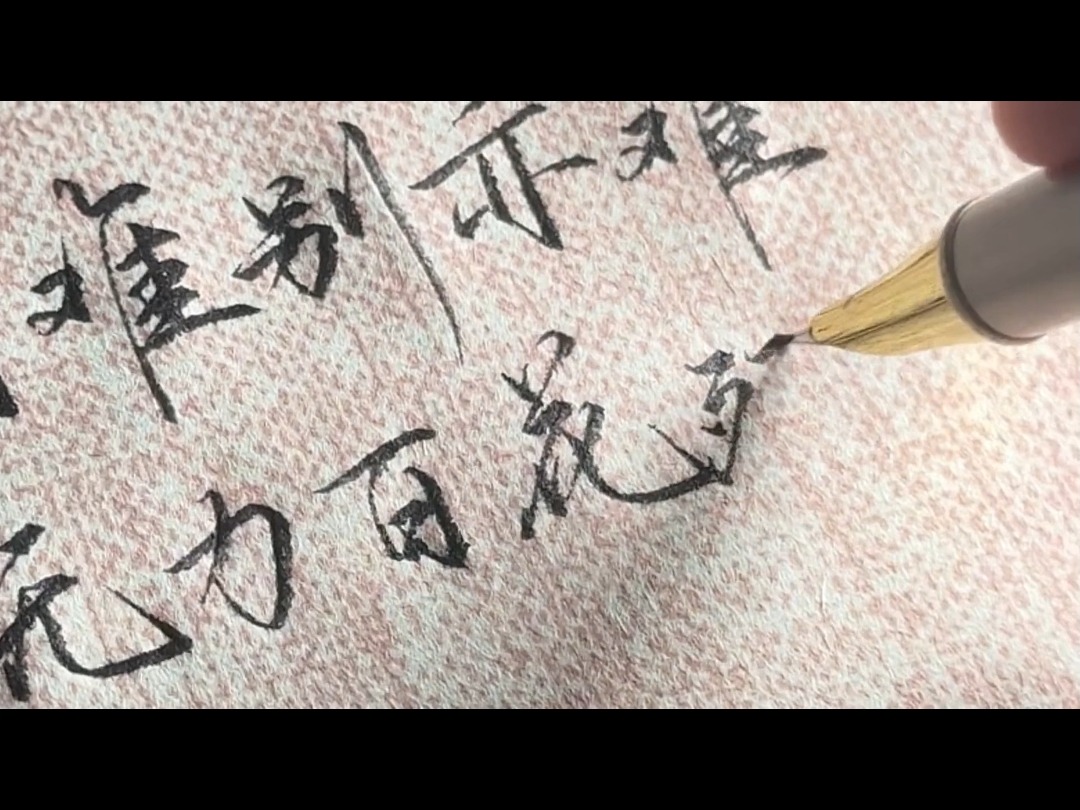 难别亦难
无力百花